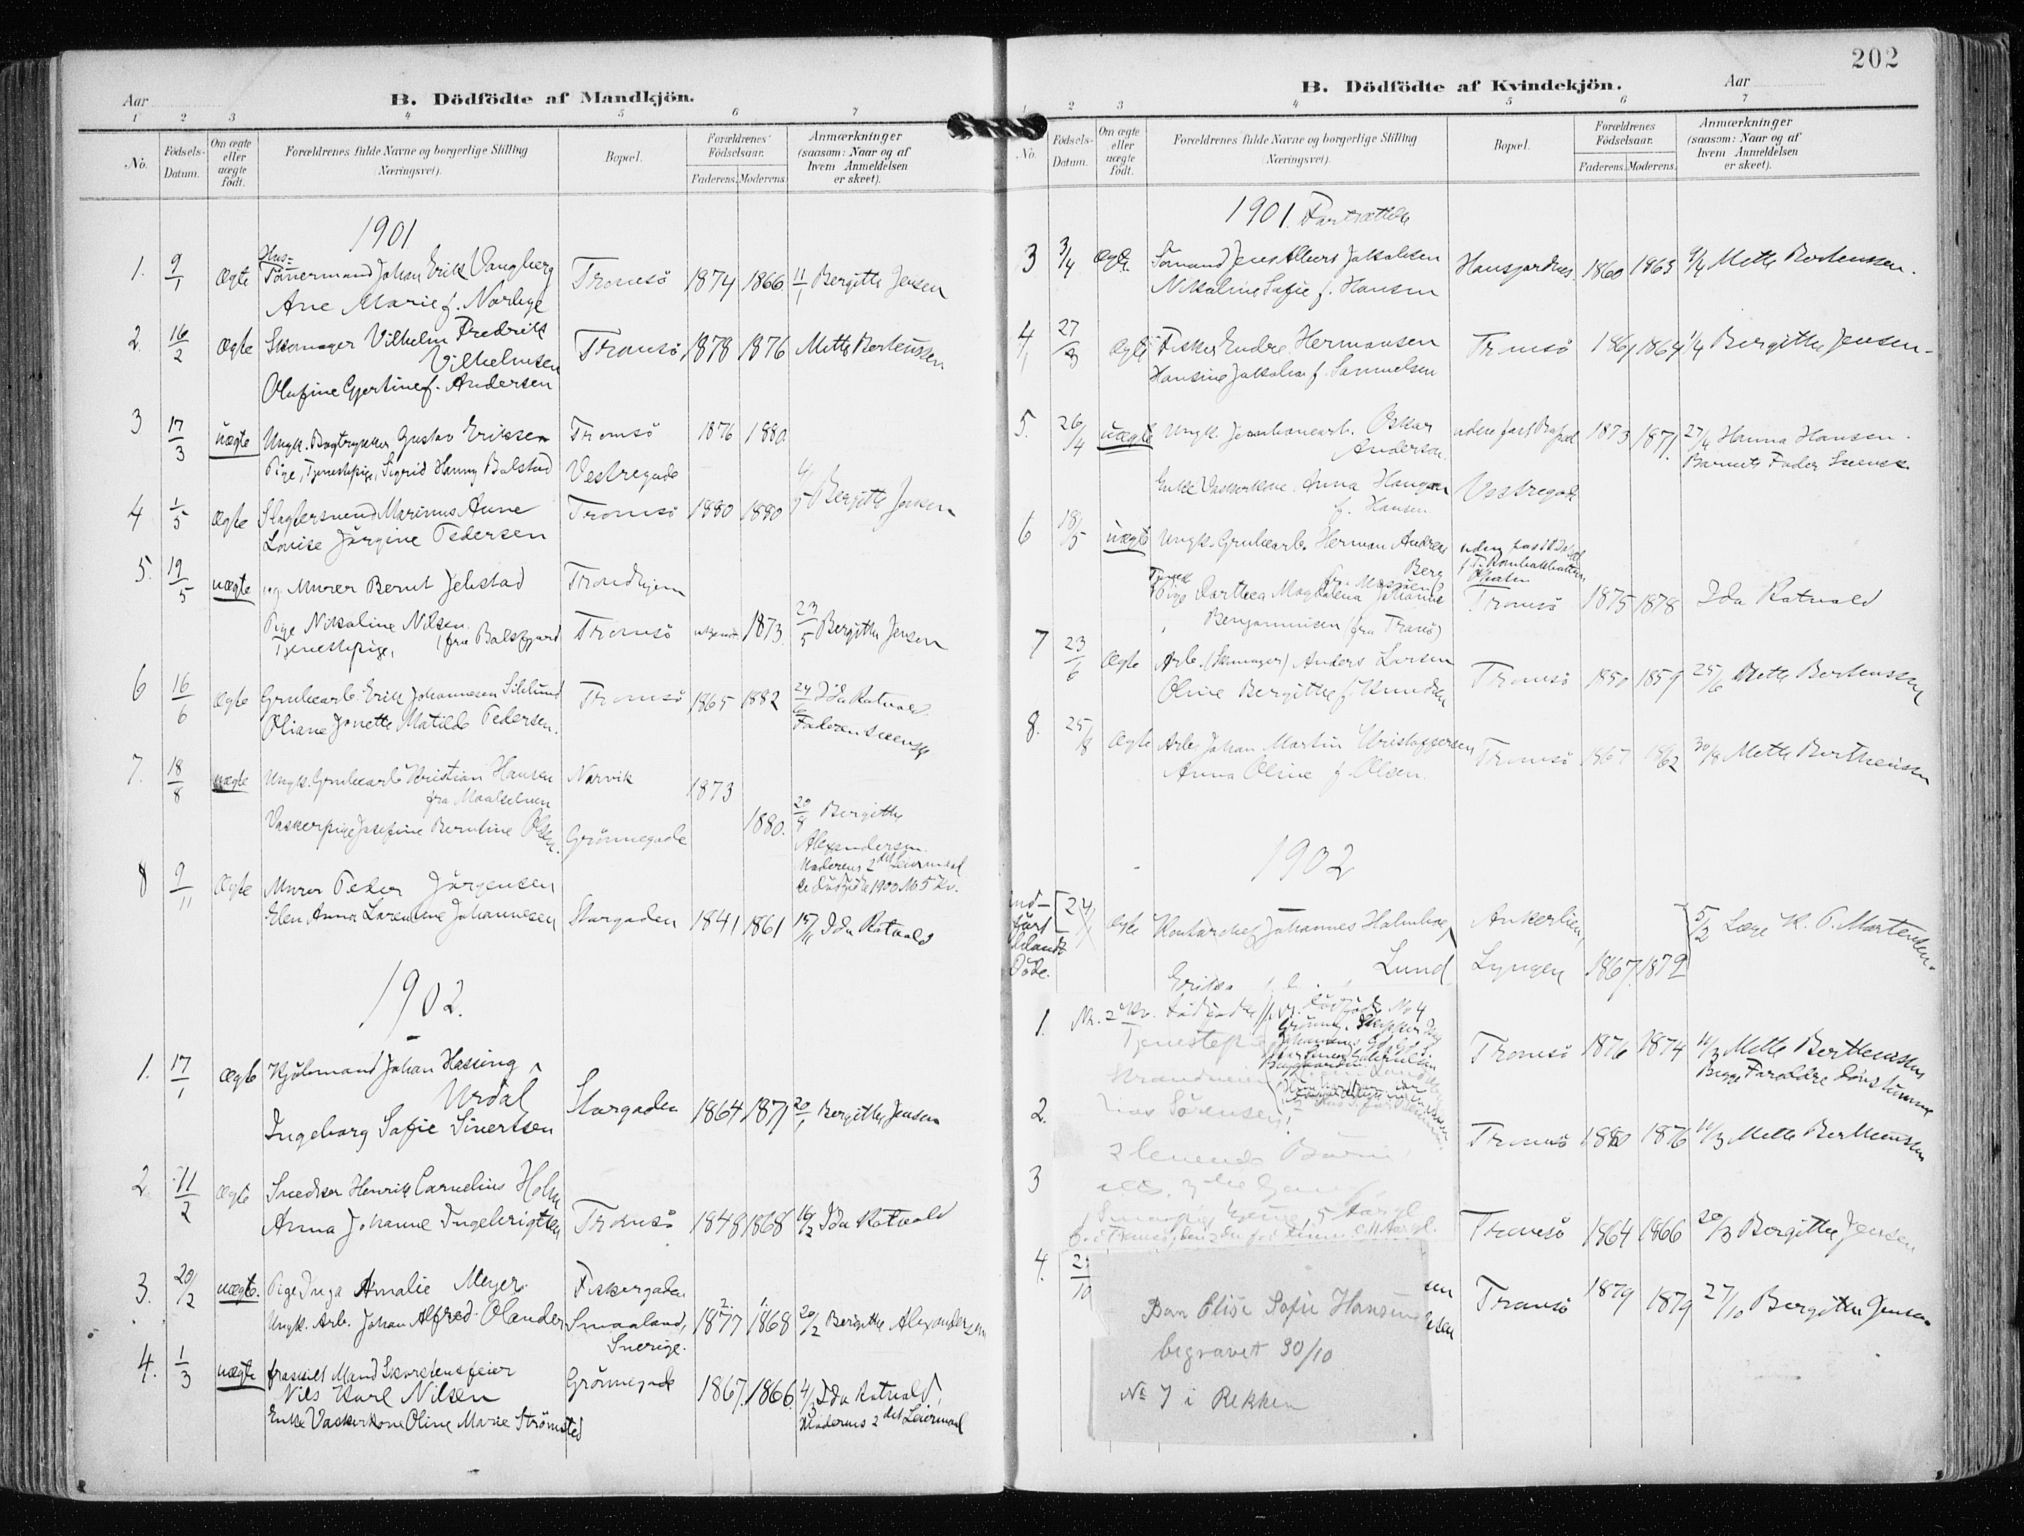 202
Aar
B. Dödfödte af Mandkjön.
1 2 3 4 5 6 7
No.
Födsels-Datum.
Om ægte eller uægte födt.
Forældrenes fulde Navne og borgerlige Stilling
(Næringsvei).
Bopæl.
Forældrenes Födselsaar.
Faderens. Moderens.
Anmærkninger
(saasom: Naar og af
hvem Anmeldelsen
er skeet).
1901
1. 9/1 Ægte Tömmermand Johan Erik Vangberg Tromsö 1874 1866 11/1 Bergitte Jensen
Ane Marie f. Norbye
2. 16/2 Ægte Skomager Vilhelm Fredrik Tromsö 1878 1876 Mette Berteussen
Vilhelmsen
Olufine Gjertine f. Andersen
3 17/3 uægte Ungk. Bogtrykker Gustav Eriksen Tromsö 1876 1880
Pige, Tjenestepige, Sigrid Hanny Balstad Vestregade
4 1/5 Ægte Slagtersvend Marinus Aune Tromsö 1880 1880 4/5 Bergitte Jensen
Lovise Jörgine Pedersen
5. 19/5 uægte Murer Bernt Jelstad Trondhjem
Pige Nikoline Nilsen Tromsö 1873. 23/5 Bergitte Jensen
Tjenestepige, (fra Balsfjord
6 16/6 Ægte Grubearb. Erik Johannesen Siklund Tromsö 1865 1882 24/6 Ida Rotvold
Oliane Jonette Matilde Pedersen. Faderen svensk
7. 18/8 uægte Ungk. Grubearb. Kristian Hansen Narvik 1873
fra Maalselven
Vaskerpige Josefine Berntine Olsen Grönnegade 1880. 20/8 Bergitte
Alexandersen.
Moderens 2det Leiermaal
8 9/11 Ægte Murer Peder Jörgensen
Elen Anna Lorentine Johannesen Storgaden 1841 1861 15/11 Ida Rotvold
1902.
1. 17/1 Ægte Hjulmand Johan Hassing
Urdal Storgaden 1864 1871 20/1 Bergitte Jensen
Ingeborg Sofie Sivertsen
2 11/2 Ægte Snedker Henrik Cornelius Holm
Anna Johanne Ingebrigtsen Tromsö 1848 1868 16/2 Ida Rotvold
3. 20/2 uægte. Pige Inga Amalie Meyer Fiskergaden
Ungk. Arb. Johan Alfred Olander Smaaland, 1877 1868 20/2 Bergitte Alexandersen
Sverige.
4. 1/3 uægte fraskilt Mand Skorstensfeier Grönnegade 1867. 1866. 4/3 Ida Rotvold,
Nils Karl Nilsen
Enke Vaskerkone Oline Marie Strömsted Moderens 2det Leiermaal
B. Dödfödte af Kvindekjön.
Aar
1 2 3 4 5 6 7
No.
Födsels-Datum.
Om ægte eller uægte födt.
Forældrenes fulde Navne og borgerlige Stilling
(Næringsvei).
Bopæl.
Forældrenes Födselsaar.
Faderens. Moderens.
Anmærkninger
(saasom: Naar og af
hvem Anmeldelsen
er skeet).
1901. Fortsættelse
3 3/4 Ægte Sömand Jens Albert Jakobsen Hansjordnes 1860 1863 9/4 Mette Berteussen.
Nikoline Sofie f. Hansen
4 27/3 Ægte Fisker Endre Hermansen Tromsö 1861 1864 1/4 Bergitte Jensen
Hansine Jakobine f. Samuelsen
5. 26/4 uægte Ungk. Jernbanearb. Oskar uden fast Bopæl 1873 1871. 27/4 Hanna Hansen.
Anderson. Barnets Fader Svensk
Enke Vaskerkone. Anna Haugen Vestregade
f. Hansen
6 18/5 uægte Ungk. Grubearb. Herman Andreas uden fast Bopæl
Berg
Pige Dorthea Magdalena Johanne Tromsö 1875 1878 Ida Rotvold
Benjaminsen (fra Tranö)
7 23/6 Ægte Arb. (Skomager) Anders Larsen Tromsö 1850 1859 25/6 Mette Berteussen
Oline Bergitte f. Knudsen
8. 25/8 Ægte Arb. Johan Martin Kristoffersen Tromsö 1867 1862 30/8 Mette Bertheussen
Anna Oline f. Olsen.
1902
indført blandt Döde. 2 4/1 Ægte Kontorchef Johannes Holmboe Ankerlien, 5/2 Læge K. P. Martensen.
Lund Lyngen 1867. 1872
1. Nr. 2 Kv. Tromsö 1876 1874 14/3 Mette Bertheussen
Tjenestepi Begge Forældre Dövstumme
2. Sörensen! Tromsö 1880 1876 14/3 Mette Bertheussen
2 levende Börn
3 Tromsö 1864 1866 20/3 Bergitte Jensen
4. 2/10 Tromsö 1879 1879 27/10 Bergitte Jensen
Barn Elise Sofie Hansens
begravet 30/10
No 7 i Rekken